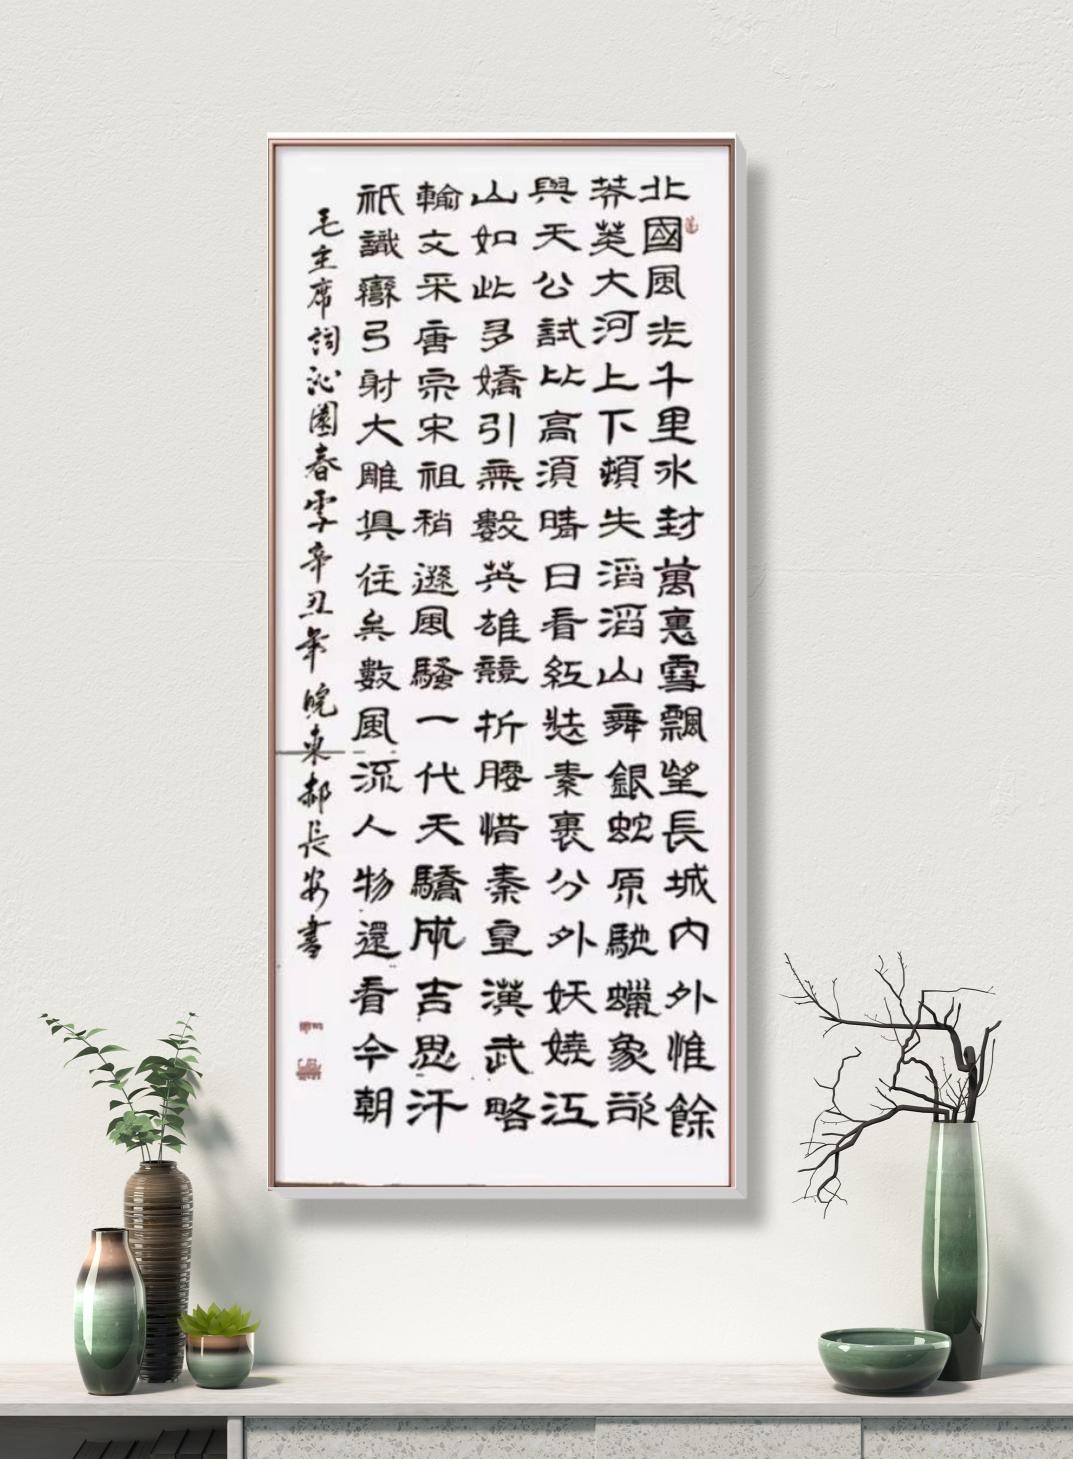 北國風光千里冰封萬裏雪飄望長城內外惟餘
莽莽大河上下頓失滔滔山舞銀蛇原馳蠟象欲
與天公試比高須晴日看紅裝素裹分外妖嬈江
山如此多嬌引無數英雄競折腰惜秦皇漢武略
輸文采唐宗宋祖稍遜風騷一代天驕成吉思汗
祇識彎弓射大雕俱往矣數風流人物還看今朝
毛主席詞沁園春雪辛丑年皖東郝長安書